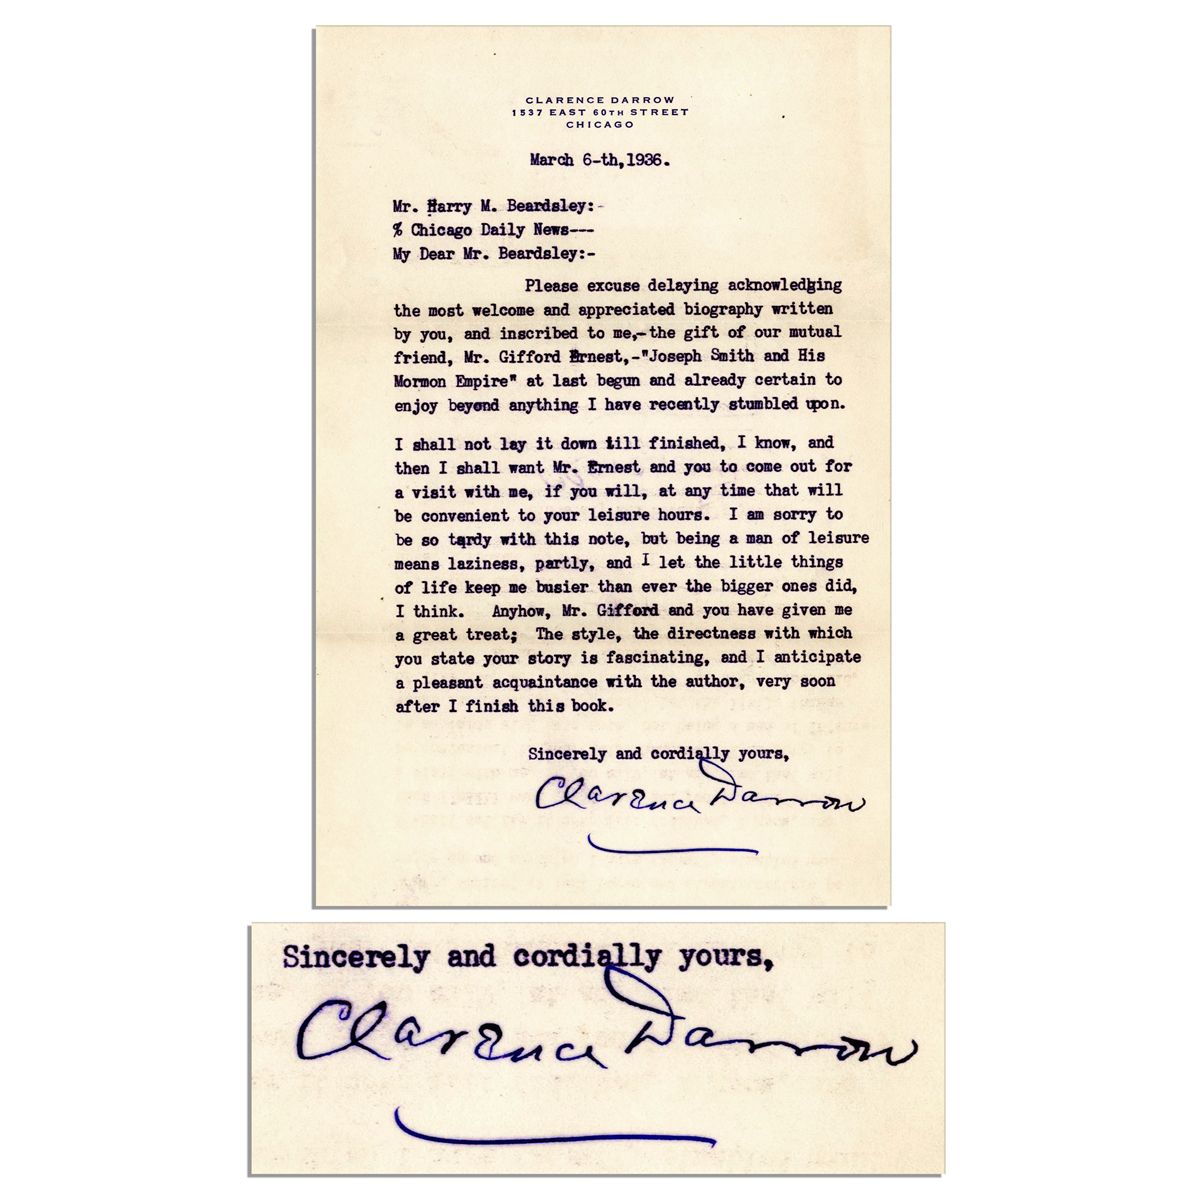 CLARENCE DARROW
1537 EAST 60TH STREET
CHICAGO
March 6-th,1936.
Mr. Harry M. Beardsley:-
% Chicago Daily News---
My Dear Mr. Beardsley:-
Please excuse delaying acknowledging
the most welcome and appreciated biography written
by you, and inscribed to me,-the gift of our mutual
friend, Mr. Gifford Ernest,-"Joseph Smith and His
Mormon Empire" at last begun and already certain to
enjoy beyond anything I have recently stumbled upon.
I shall not lay it down till finished, I know, and
then I shall want Mr. Ernest and you to come out for
a visit with me, if you will, at any time that will
be convenient to your leisure hours. I am sorry to
be so tardy with this note, but being a man of leisure
means laziness, partly, and I let the little things
of life keep me busier than ever the bigger ones did,
I think. Anyhow, Mr. Gifford and you have given me
a great treat; The style, the directness with which
you state your story is fascinating, and I anticipate
a pleasant acquaintance with the author, very soon
after I finish this book.
Sincerely and cordially yours,
Clarence Darrow
Sincerely and cordially yours,
Clarence Darrow